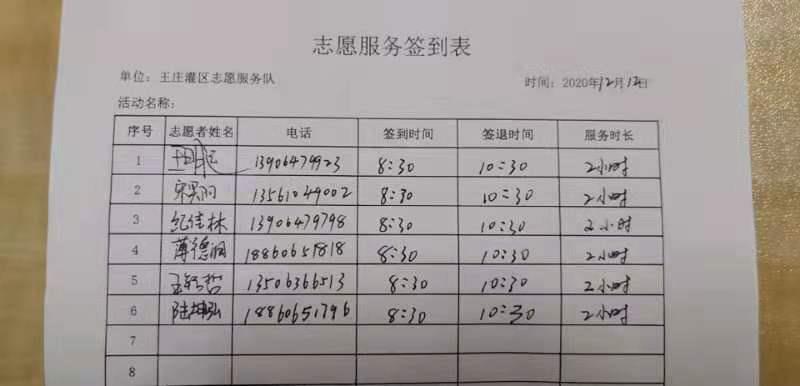 志愿服务签到表
单位：王庄灌区志愿服务队 时间：2020年12月12日
活动名称：
序号 志愿者姓名 电话 签到时间 签退时间 服务时长
1 13906479923 8:30 10:30 2小时
2 13561049002 8:30 10:30 2小时
3 纪佳林 13906479798 8:30 10:30 2小时
4 薄德润 18860651818 8:30 10:30 2小时
5 13506366513 8:30 10:30 2小时
6 陆坤弘 18860651796 8:30 10:30 2小时
7
8